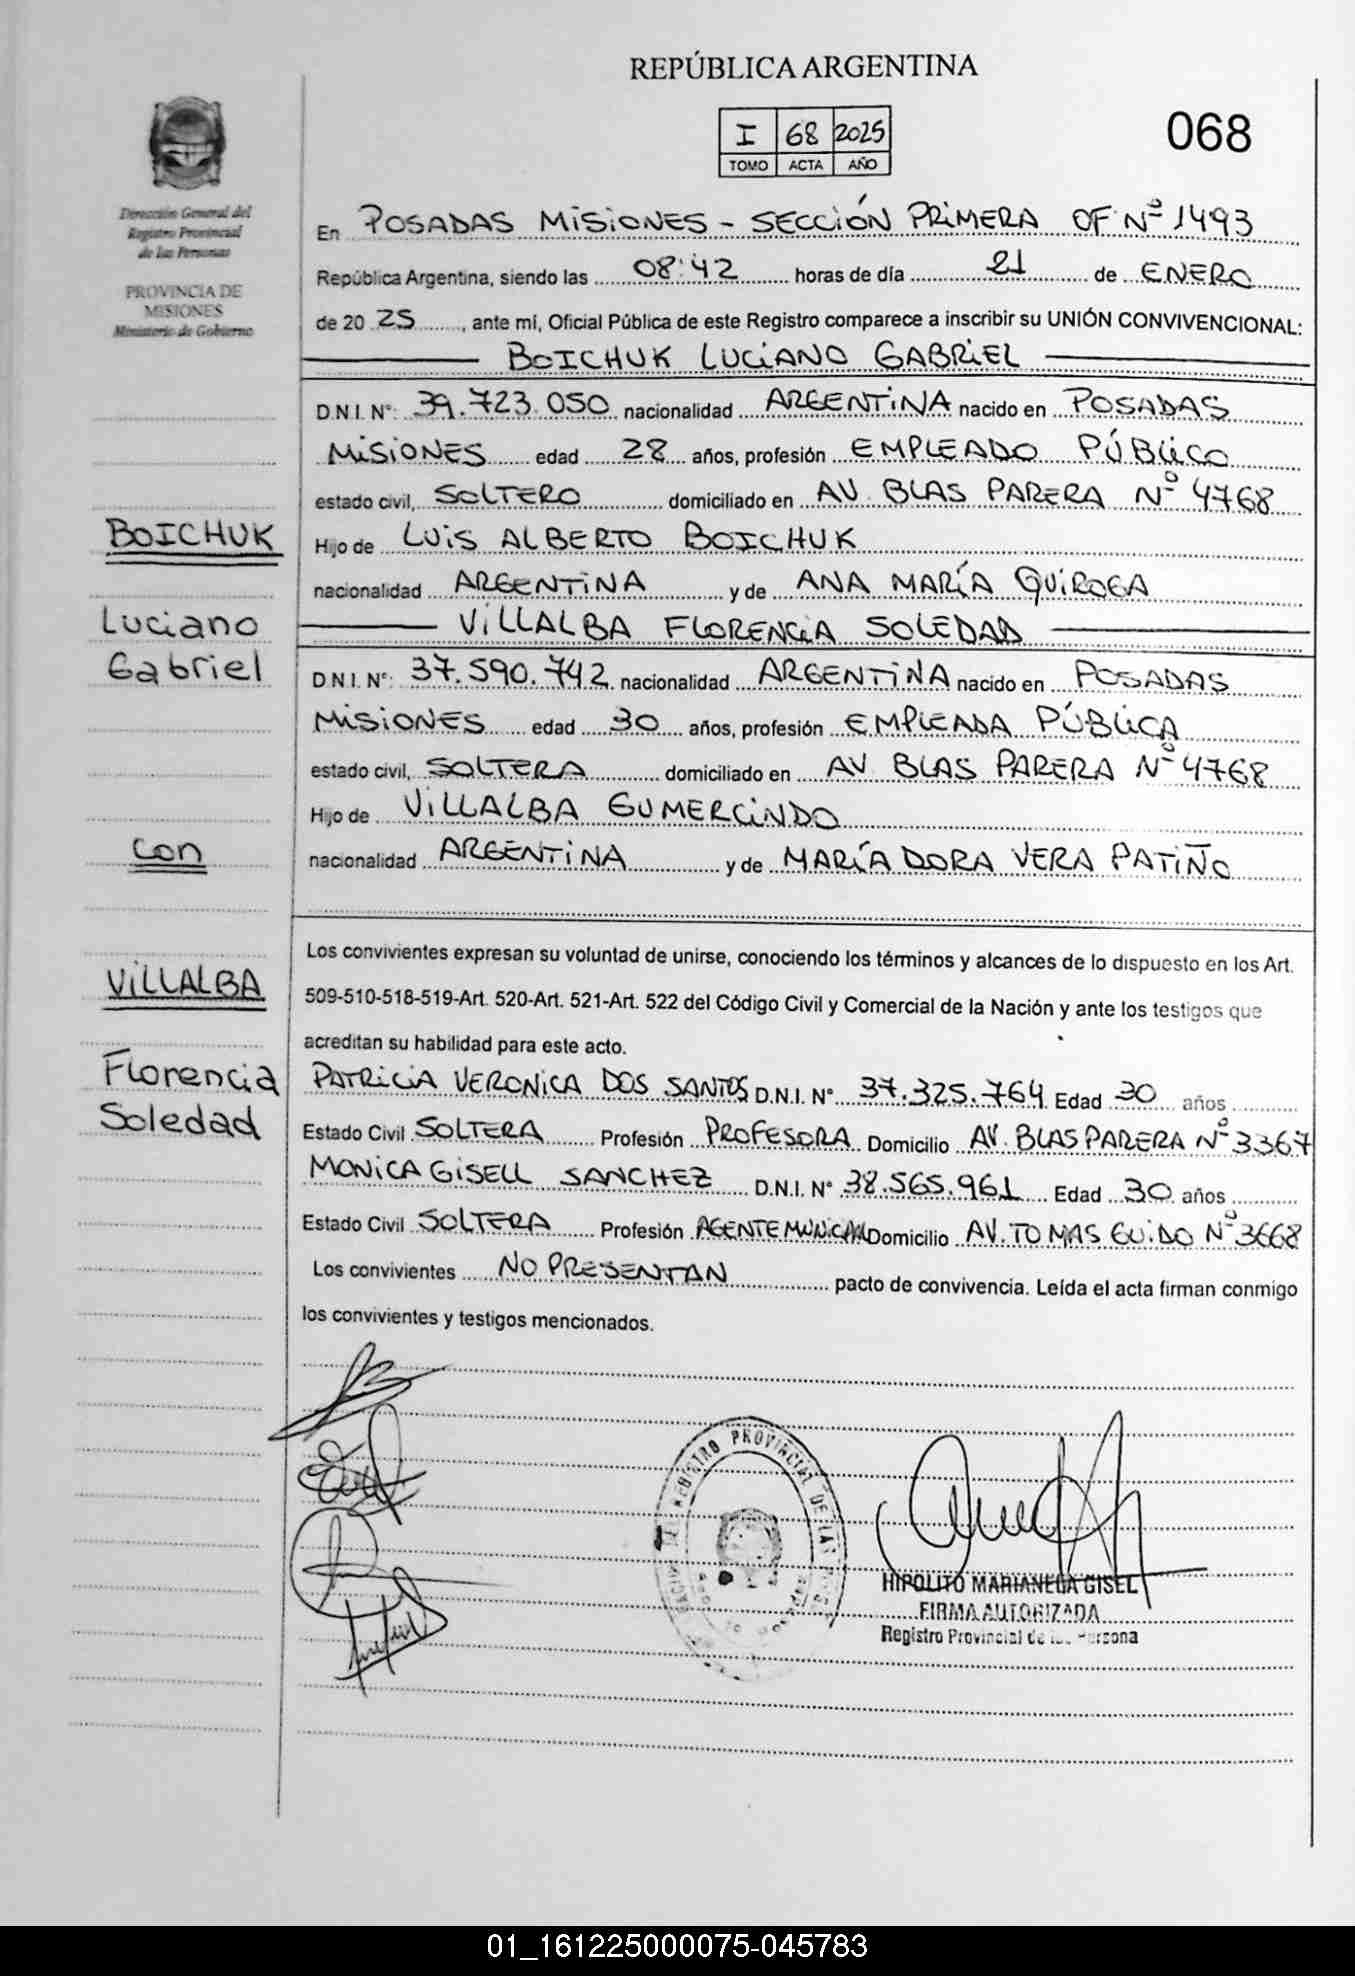 REPÚBLICA ARGENTINA
I 68 2025
TOMO ACTA AÑO
068
Dirección General del
Registro Provincial
de las Personas
PROVINCIA DE
MISIONES
Ministerio de Gobierno
En POSADAS MISIONES - SECCIÓN PRIMERA OF Nº 1493
República Argentina, siendo las 08:42 horas de día 21 de ENERO
de 20 25, ante mí, Oficial Pública de este Registro comparece a inscribir su UNIÓN CONVIVENCIONAL:
BOICHUK LUCIANO GABRIEL
D.N.I. N°: 39.723.050 nacionalidad ARGENTINA nacido en POSADAS
MISIONES edad 28 años, profesión EMPLEADO PÚBLICO
estado civil, SOLTERO domiciliado en AV. BLAS PARERA Nº 4768
Hijo de LUIS ALBERTO BOICHUK
nacionalidad ARGENTINA y de ANA MARÍA QUIROGA
VILLALBA FLORENCIA SOLEDAD
D.N.I. N°: 37.590.742 nacionalidad ARGENTINA nacido en POSADAS
MISIONES edad 30 años, profesión EMPLEADA PÚBLICA
estado civil, SOLTERA domiciliado en AV BLAS PARERA Nº 4768
Hijo de VILLALBA GUMERCINDO
nacionalidad ARGENTINA y de MARÍA DORA VERA PATIÑO
BOICHUK
Luciano
Gabriel
con
VILLALBA
Florencia
Soledad
Los convivientes expresan su voluntad de unirse, conociendo los términos y alcances de lo dispuesto en los Art.
509-510-518-519-Art. 520-Art. 521-Art. 522 del Código Civil y Comercial de la Nación y ante los testigos que
acreditan su habilidad para este acto.
PATRICIA VERONICA DOS SANTOS D.N.I. N° 37.325.764 Edad 30 años
Estado Civil SOLTERA Profesión PROFESORA Domicilio AV. BLAS PARERA Nº 3367
MONICA GISELL SANCHEZ D.N.I. N° 38.565.961 Edad 30 años
Estado Civil SOLTERA Profesión AGENTE Domicilio AV. TOMAS GUIDO Nº 3668
Los convivientes NO PRESENTAN pacto de convivencia. Leída el acta firman conmigo
los convivientes y testigos mencionados.
REGISTRO PROVINCIAL DE LAS
HIPOLITO MARIANELA GISEL
FIRMA AUTORIZADA
Registro Provincial de las Persona
01_161225000075-045783